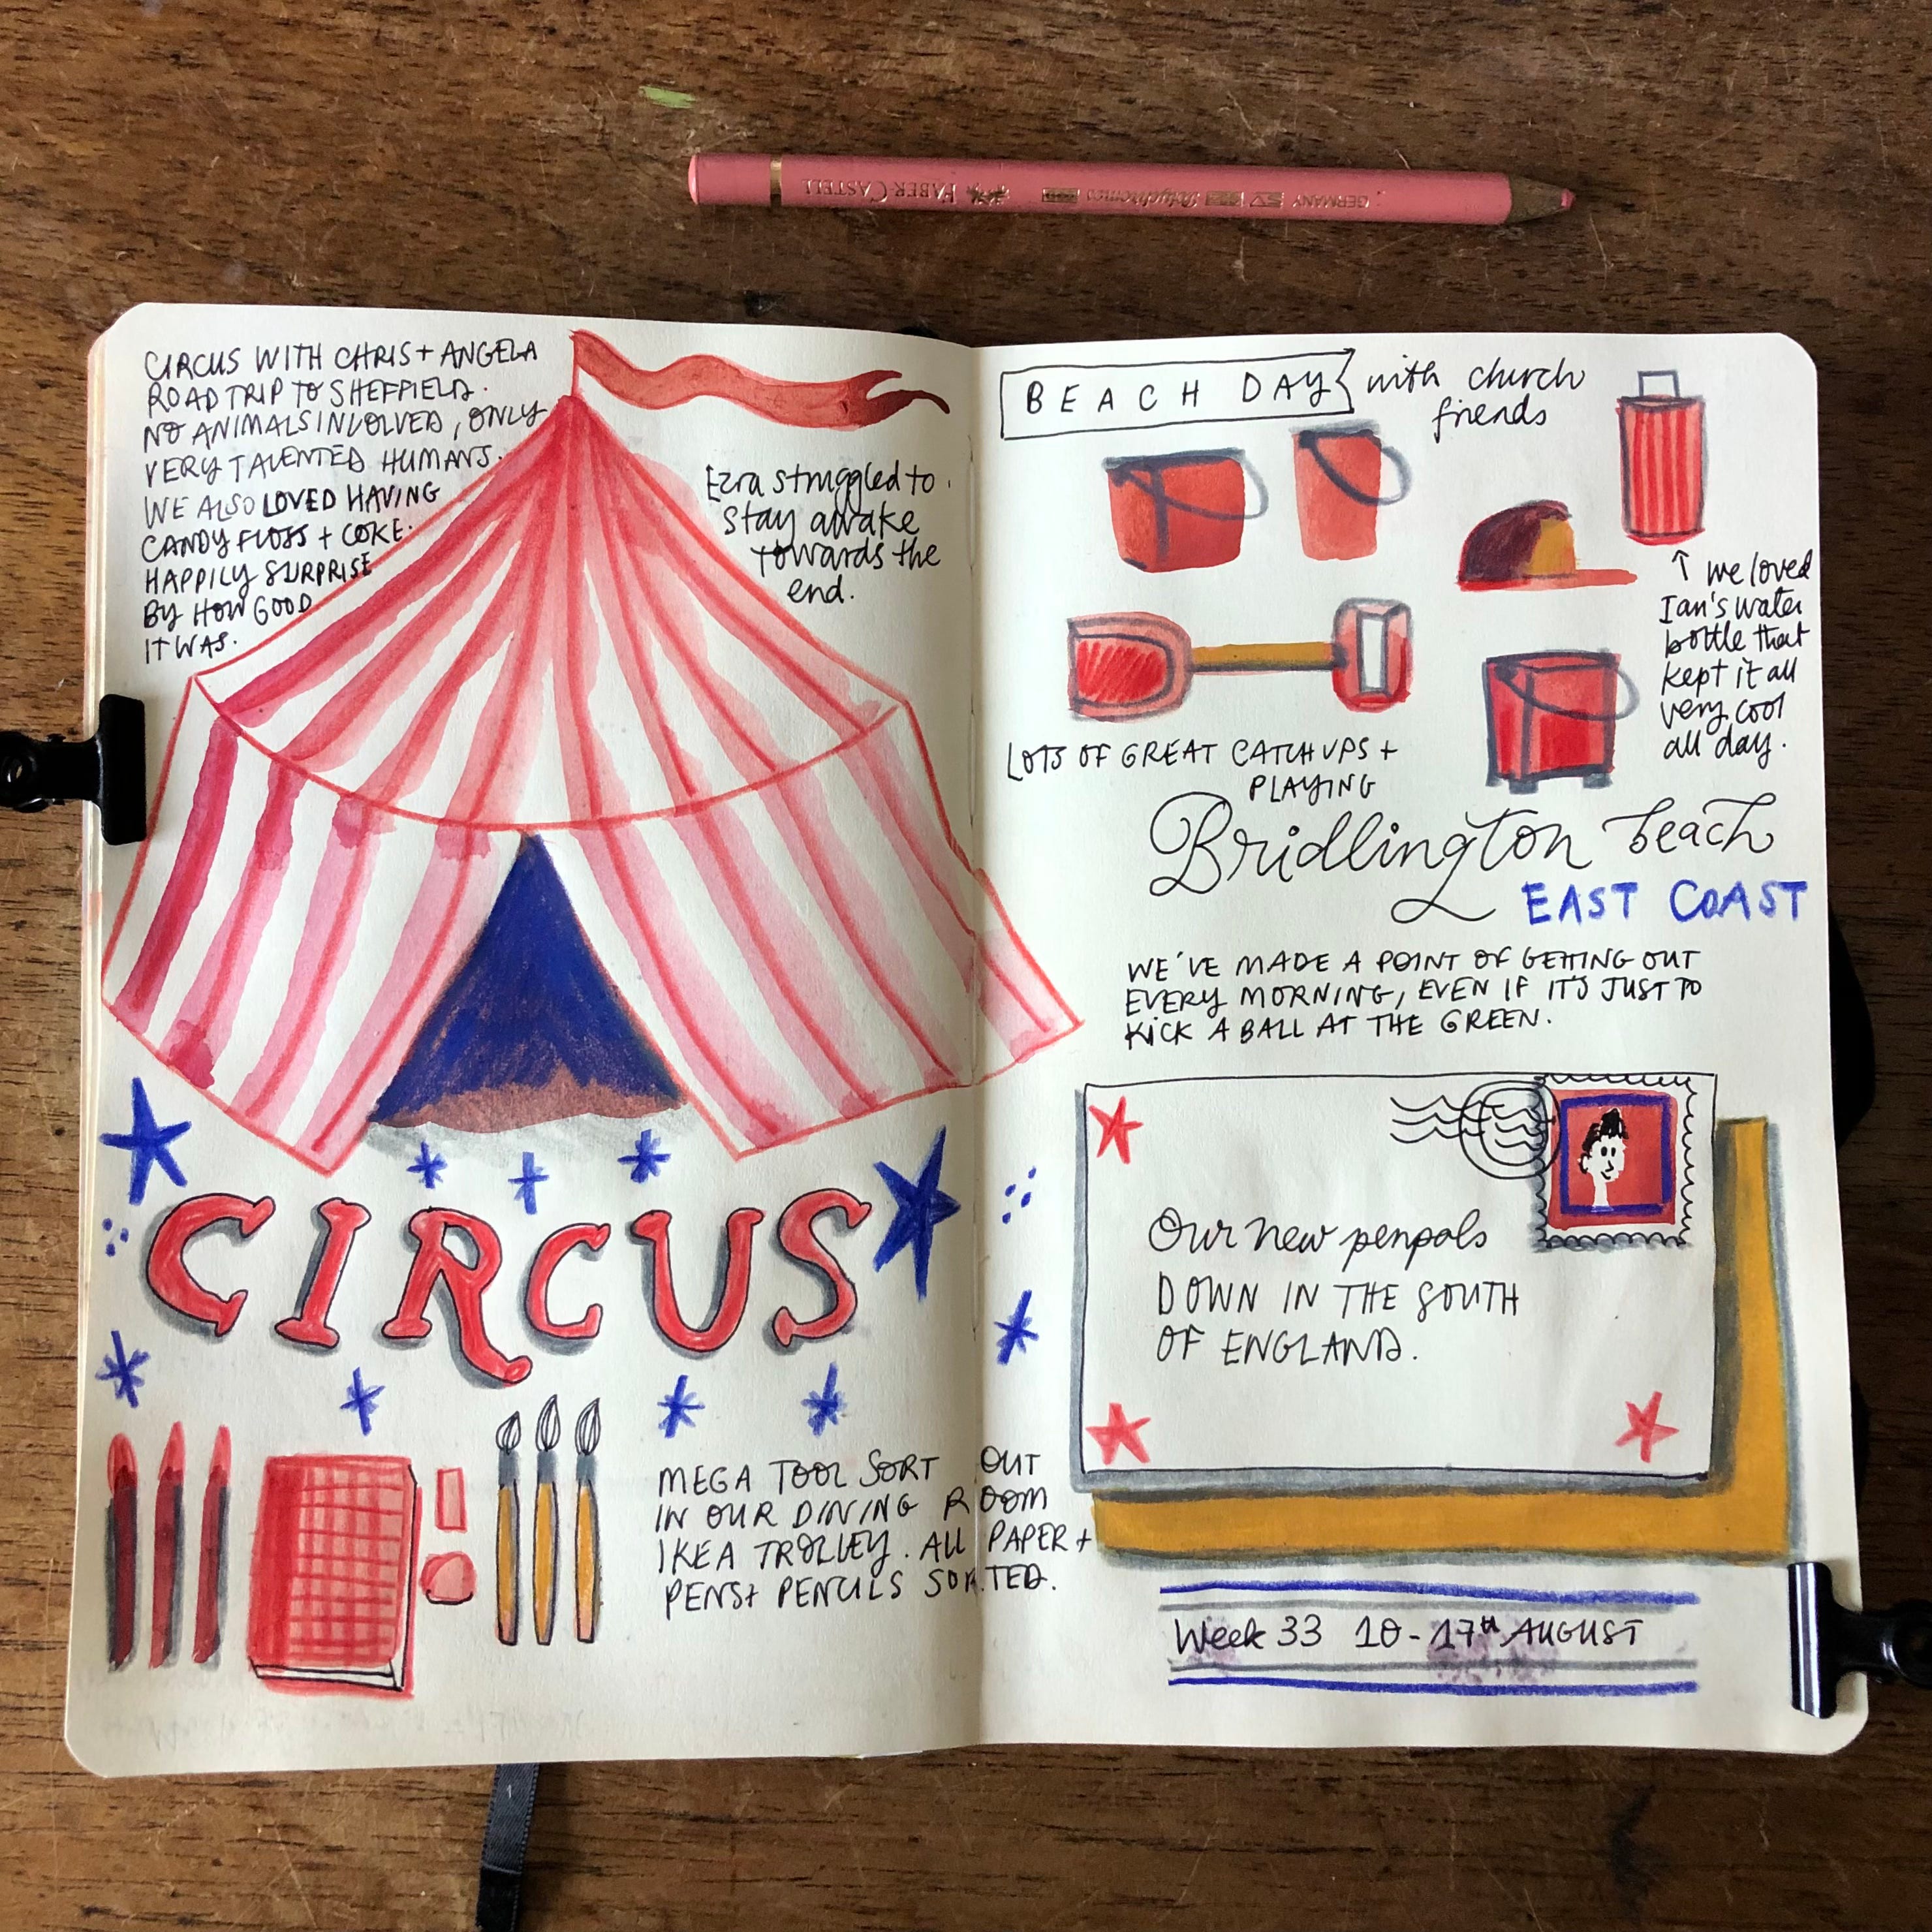 FABER-CASTELL Polychromos GERMANY
CIRCUS WITH CHRIS + ANGELA
ROAD TRIP TO SHEFFIELD.
NO ANIMALS INVOLVED, ONLY
VERY TALENTED HUMANS.
WE ALSO LOVED HAVING
CANDY FLOSS + COKE.
HAPPILY SURPRISE
BY HOW GOOD
IT WAS.
Ezra struggled to
stay awake
towards the
end.
CIRCUS
MEGA TOOL SORT OUT
IN OUR DINING ROOM
IKEA TROLLEY. ALL PAPER +
PENS+ PENCILS SORTED.
BEACH DAY with church
friends
↑ we loved
Ian's water
bottle that
kept it all
very cool
all day.
LOTS OF GREAT CATCH UPS +
PLAYING
Bridlington beach
EAST COAST
WE'VE MADE A POINT OF GETTING OUT
EVERY MORNING, EVEN IF IT'S JUST TO
KICK A BALL AT THE GREEN.
Our new penpals
DOWN IN THE SOUTH
OF ENGLAND.
Week 33 10-17th AUGUST